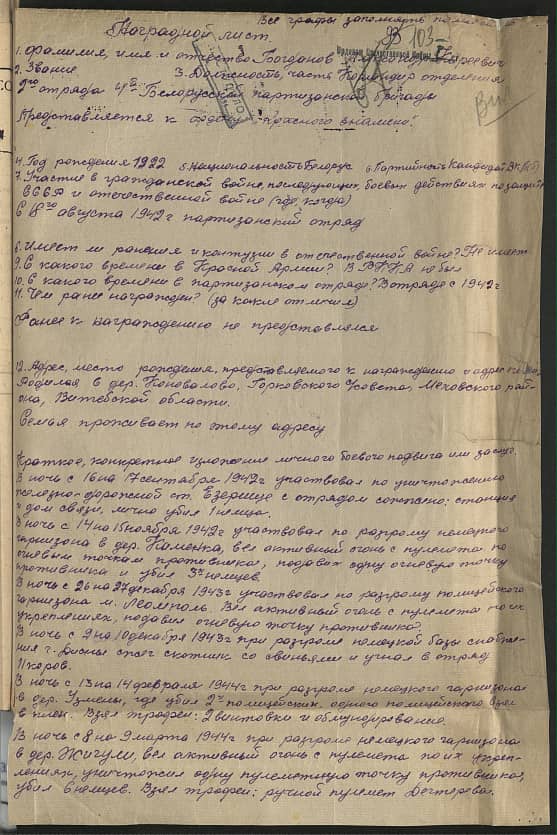 Все графы заполнять
Наградной лист
103
1. Фамилия, имя и отчество Богданов
2. Звание 3. Должность, часть Командир отделения
2го отряда 4й Белорусской партизанской бригады
Представляется к ордену "Красного знамени".
4. Год рождения 1922 5. Национальность Белорус 6. Партийность Кандидат ВКП(б)
7. Участие в гражданской войне, последующих боевых действиях по защите
СССР и отечественной войне (где, когда)
С 8го августа 1942 г партизанский отряд
8. Имеет ли ранения и контузии в отечественной войне? Не имеет
9. С какого времени в Красной Армии? В РККА не был
10. С какого времени в партизанском отряде? В отряде с 1942 г
11. Чем ранее награжден? (за какие отличия)
Ранее к награждению не представлялся
12. Адрес, место рождения, представляемого к награждению и адрес
Родился в дер. Коновалово, Горковского с/совета, Меховского рай-
она, Витебской области.
Семья проживает по этому адресу
Краткое, конкретное изложение личного боевого подвига или заслуг.
В ночь с 16 на 17 сентября 1942 г участвовал по уничтожению
железно-дорожной ст. Езерище с отрядом сожжено: станция
и дом связи, лично убил 1 немца.
В ночь с 14 на 15 ноября 1942 г участвовал по разгрому немецкого
гарнизона в дер. Каменка, вел активный огонь с пулемета по
огневым точкам противника, подавил одну огневую точку
противника и убил 3х немцев.
В ночь с 26 на 27 декабря 1943 г участвовал по разгрому полицейского
гарнизона м. Леонполь. Вел активный огонь с пулемета по их
укреплениях, подавил огневую точку противника.
В ночь с 9 на 10 декабря 1943 г при разгроме немецкой базы снабже-
ния г. Дисны сжег скотник со свиньями и угнал в отряд
11 коров.
В ночь с 13 на 14 февраля 1944 г при разгроме немецкого гарнизона
в дер. Узмены, где убил 2х полицейских, одного полицейского взял
в плен. Взял трофеи: 2 винтовки и обмундирование.
В ночь с 8 на 9 марта 1944 г при разгроме немецкого гарнизона
в дер. Жигули, вел активный огонь с пулемета по их укреп-
лениях, уничтожил одну пулеметную точку противника,
убил 6 немцев. Взял трофеи: ручной пулемет Дегтярева.